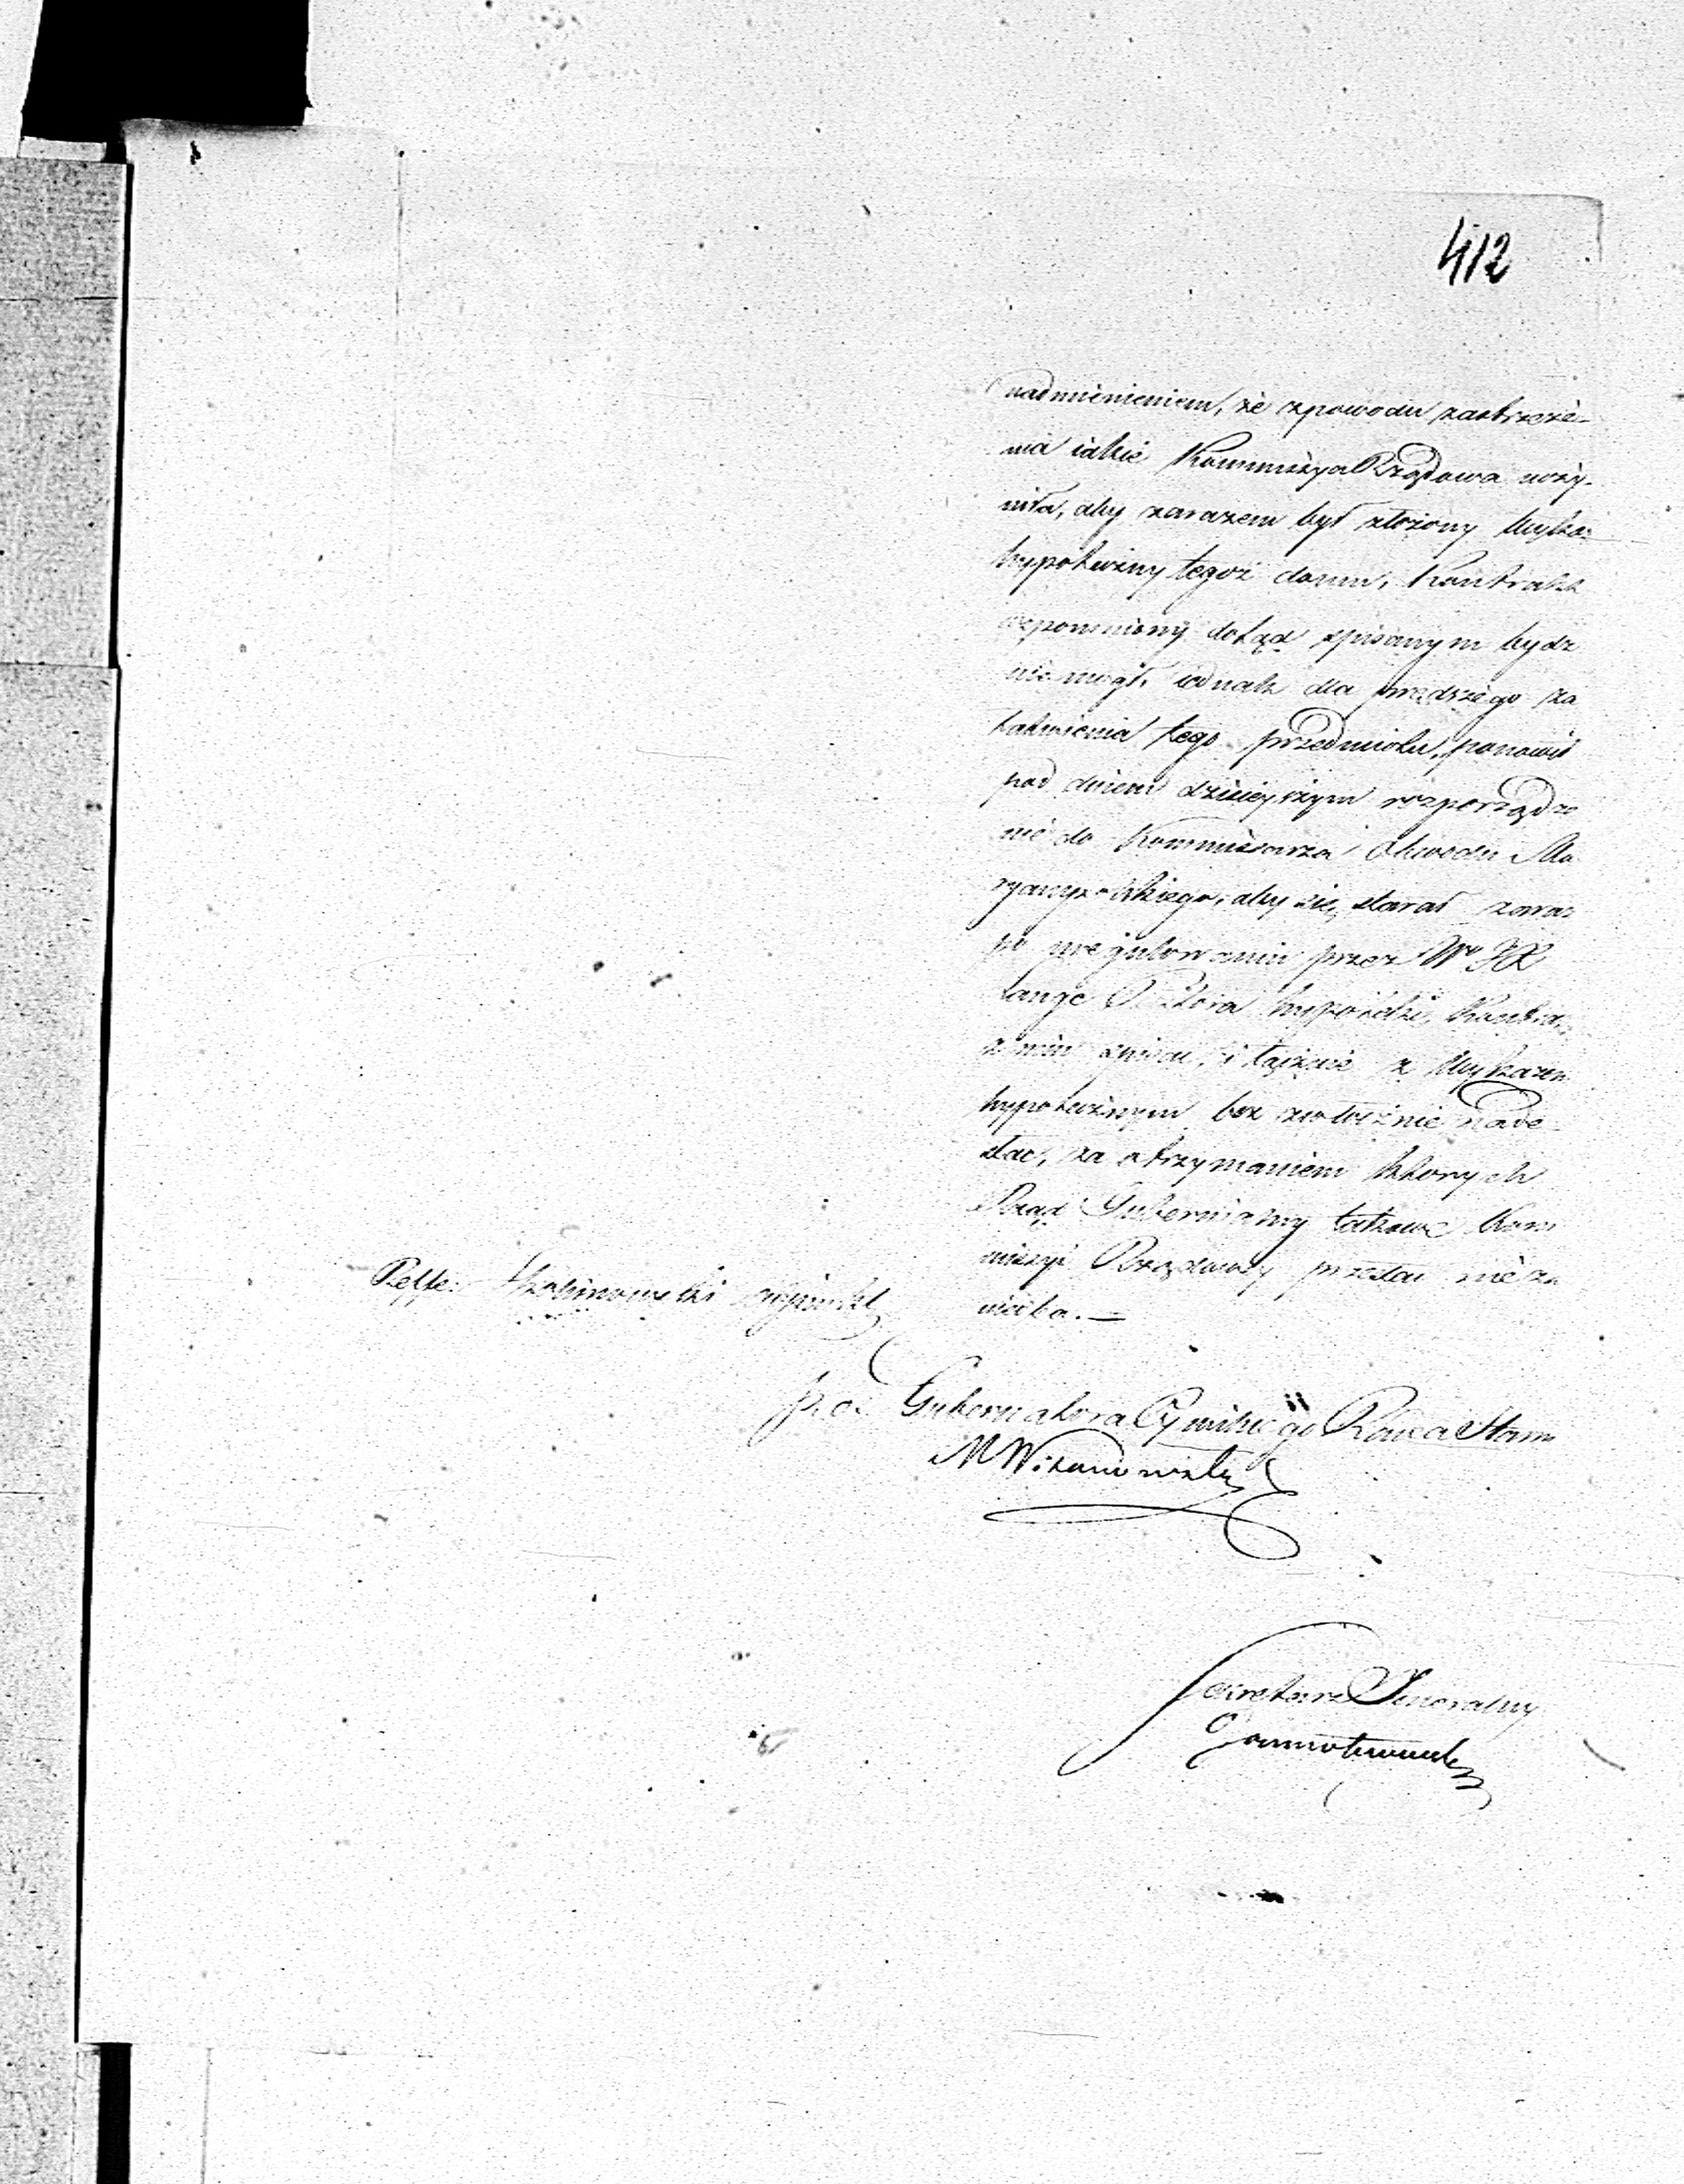 412
nadmienieniem, że z powodu zastrzeże-
nia iakie Kommissya Rządowa uczy-
niła, aby zarazem był złożony Wykaz
hypoteczny tegoż domu, Kontrakt
wspomniony dotąd spisanym bydz
nie mógł, iednak dla prędszego za
łatwienia tego przedmiotu, ponowił
pod dniem dzisieyszym rozporządze
nie do Kommissarza Obwodu Ma
ryampolskiego, aby się starał zaraz
po uregulowaniu przez
Lange hypoteki, Kontrakt
z nim i takowy z Wykazem
hypotecznym bezzwłocznie nade
słać, za otrzymaniem których
Rząd Gubernialny takowe Kom
missyi Rządowey przesłać nie za
niecha. —
Reffe:
Gubernatora Cywilnego Radca Stanu
M Wiszniowski
Sekretarz Jeneralny